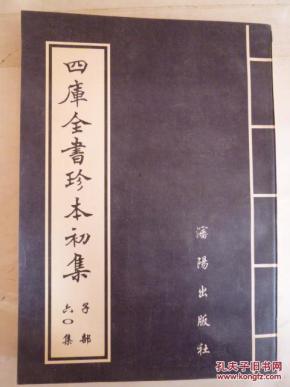 四庫全書珍本初集
子部
六〇集
瀋陽出版社
孔夫子旧书网